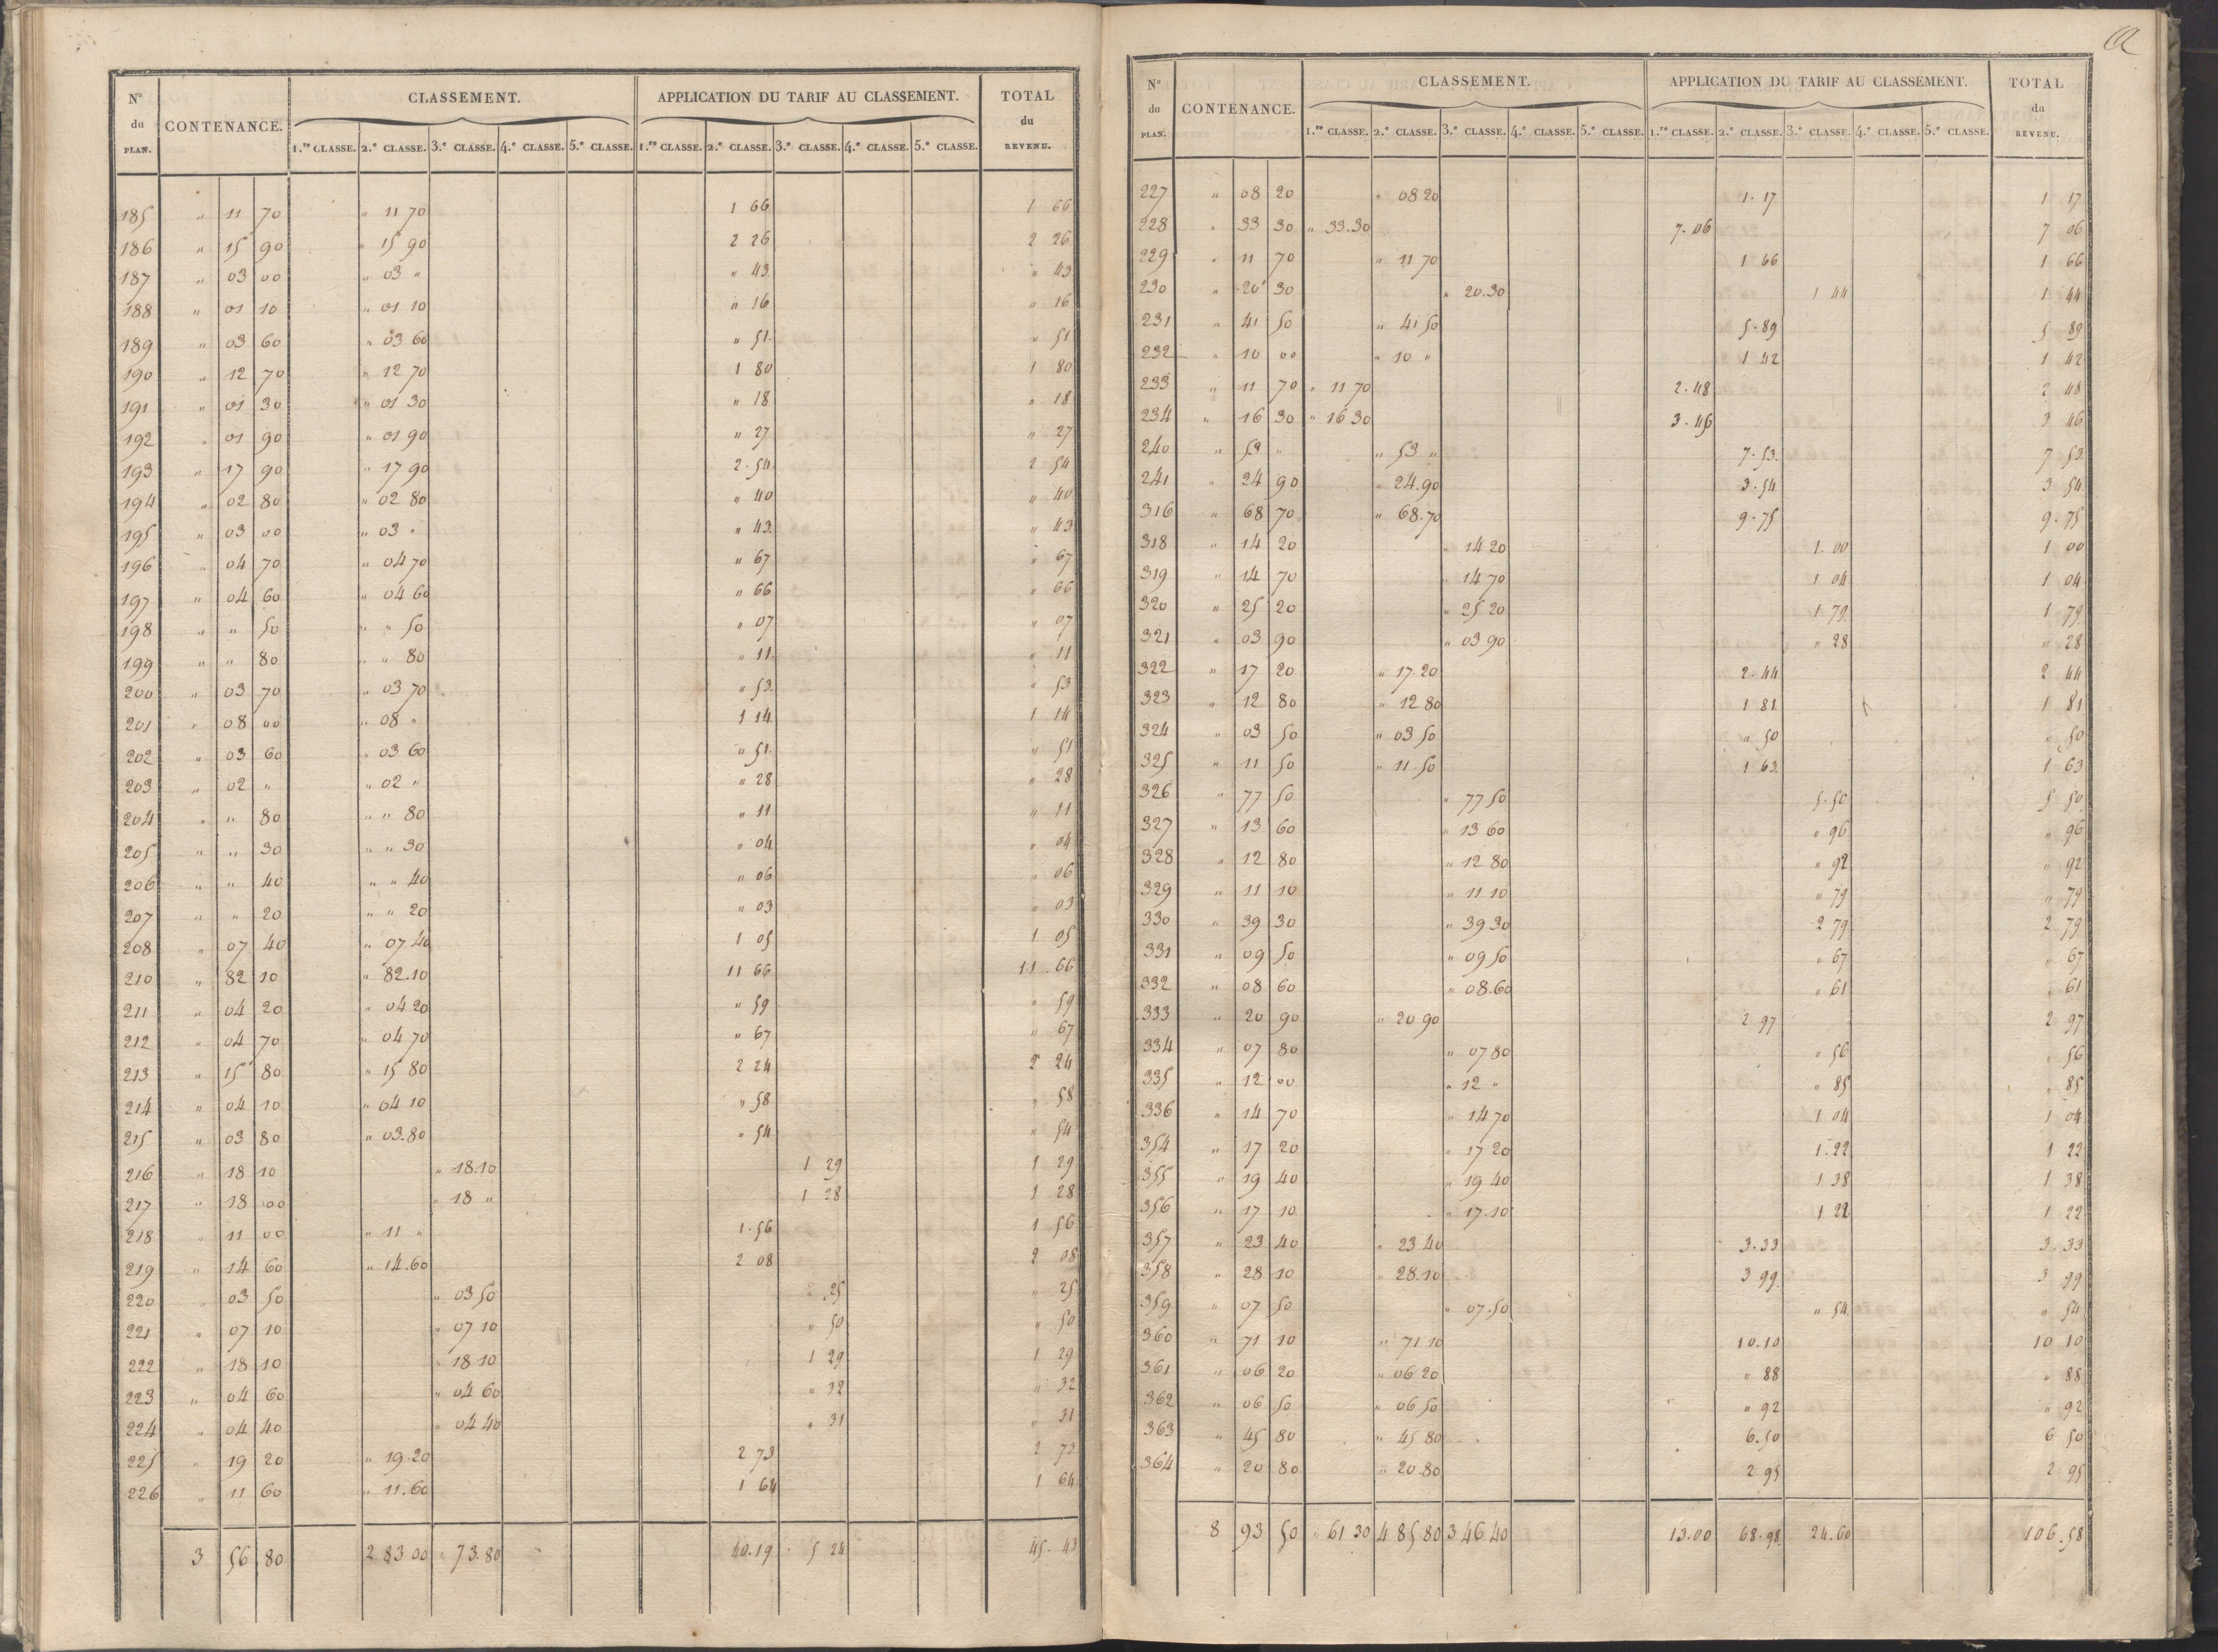 N.º du PLAN. CONTENANCE. CLASSEMENT. APPLICATION DU TARIF AU CLASSEMENT. TOTAL du REVENU.
1.re CLASSE. 2.e CLASSE. 3.e CLASSE. 4.e CLASSE. 5.e CLASSE. 1.re CLASSE. 2.e CLASSE. 3.e CLASSE. 4.e CLASSE. 5.e CLASSE.
185 " 11 70 " 11 70 1 66 1 66
186 " 15 90 " 15 90 2 26 2 26
187 " 03 00 " 03 " " 43 " 43
188 " 01 10 " 01 10 " 16 " 16
189 " 03 60 " 03 60 " 51 " 51
190 " 12 70 " 12 70 1 80 1 80
191 " 01 30 " 01 30 " 18 " 18
192 " 01 90 " 01 90 " 27 " 27
193 " 17 90 " 17 90 2.54 2 54
194 " 02 80 " 02 80 " 40 " 40
195 " 03 00 " 03 " " 43 " 43
196 " 04 70 " 04 70 " 67 " 67
197 " 04 60 " 04 60 " 66 " 66
198 " " 50 " " 50 " 07 " 07
199 " " 80 " " 80 " 11 " 11
200 " 03 70 " 03 70 " 53 " 53
201 " 08 00 " 08 " 1 14 1 14
202 " 03 60 " 03 60 " 51 " 51
203 " 02 " " 02 " " 28 " 28
204 " " 80 " " 80 " 11 " 11
205 " " 30 " " 30 " 04 " 04
206 " " 40 " " 40 " 06 " 06
207 " " 20 " " 20 " 03 " 03
208 " 07 40 " 07 40 1 05 1 05
210 " 82 10 " 82.10 11 66 11.66
211 " 04 20 " 04 20 " 59 " 59
212 " 04 70 " 04 70 " 67 " 67
213 " 15 80 " 15 80 2 24 2 24
214 " 04 10 " 04 10 " 58 " 58
215 " 03 80 " 03.80 " 54 " 54
216 " 18 10 " 18.10 1 29 1 29
217 " 18 00 " 18 " 1 28 1 28
218 " 11 00 " 11 " 1.56 1 56
219 " 14 60 " 14.60 2 08 2 08
220 " 03 50 " 03 50 " 25 " 25
221 " 07 10 " 07 10 " 50 " 50
222 " 18 10 " 18 10 1 29 1 29
223 " 04 60 " 04 60 " 32 " 32
224 " 04 40 " 04 40 " 31 " 31
225 " 19 20 " 19.20 2 73 2 73
226 " 11 60 " 11.60 1 64 1 64
3 56 80 2.83 00 " 73.80 40.19 5 24 45.43
N.º du PLAN. CONTENANCE. CLASSEMENT. APPLICATION DU TARIF AU CLASSEMENT. TOTAL du REVENU.
1.re CLASSE. 2.e CLASSE. 3.e CLASSE. 4.e CLASSE. 5.e CLASSE. 1.re CLASSE. 2.e CLASSE. 3.e CLASSE. 4.e CLASSE. 5.e CLASSE.
227 " 08 20 " 08 20 1.17 1 17
228 " 33 30 " 33.30 7.06 7 06
229 " 11 70 " 11 70 1 66 1 66
230 " 20 30 " 20.30 1 44 1 44
231 " 41 50 " 41 50 5.89 5 89
232 " 10 00 " 10 " 1 42 1 42
233 " 11 70 " 11 70 2.48 2 48
234 " 16 30 " 16 30 3.46 3 46
240 " 53 " " 53 " 7.53 7 53
241 " 24 90 " 24.90 3.54 3 54
316 " 68 70 " 68.70 9.75 9.75
318 " 14 20 " 14 20 1.00 1 00
319 " 14 70 " 14 70 1 04 1 04
320 " 25 20 " 25 20 1 79 1 79
321 " 03 90 " 03.90 " 28 " 28
322 " 17 20 " 17.20 2.44 2 44
323 " 12 80 " 12 80 1 81 1 81
324 " 03 50 " 03 50 " 50 " 50
325 " 11 50 " 11.50 1 63 1 63
326 " 77 50 " 77 50 5.50 5 50
327 " 13 60 " 13 60 " 96 " 96
328 " 12 80 " 12 80 " 92 " 92
329 " 11 10 " 11 10 " 79 " 79
330 " 39 30 " 39 30 2 79 2 79
331 " 09 50 " 09 50 " 67 " 67
332 " 08 60 " 08.60 " 61 " 61
333 " 20 90 " 20 90 2 97 2 97
334 " 07 80 " 07 80 " 56 " 56
335 " 12 00 " 12 " " 85 " 85
336 " 14 70 " 14 70 1 04 1 04
354 " 17 20 " 17 20 1.22 1 22
355 " 19 40 " 19 40 1 38 1 38
356 " 17 10 " 17.10 1 22 1 22
357 " 23 40 " 23 40 3.33 3.33
358 " 28 10 " 28.10 3 99 3 99
359 " 07 50 " 07.50 " 54 " 54
360 " 71 10 " 71 10 10.10 10 10
361 " 06 20 " 06 20 " 88 " 88
362 " 06 50 " 06 50 " 92 " 92
363 " 45 80 " 45 80 6.50 6 50
364 " 20 80 " 20.80 2 95 2 95
8 93 50 " 61 30 4 85 80 3 46 40 13.00 68.98 24.60 106.58